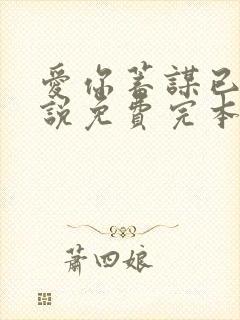 愛你蓄謀已
說免費完本
蕭四娘